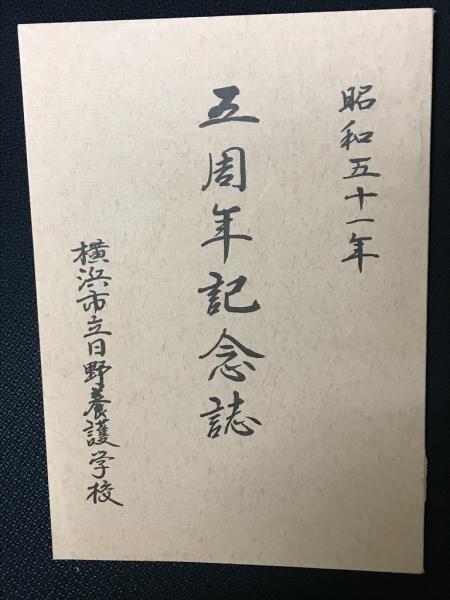 昭和五十一年
五周年記念誌
横浜市立日野養護学校